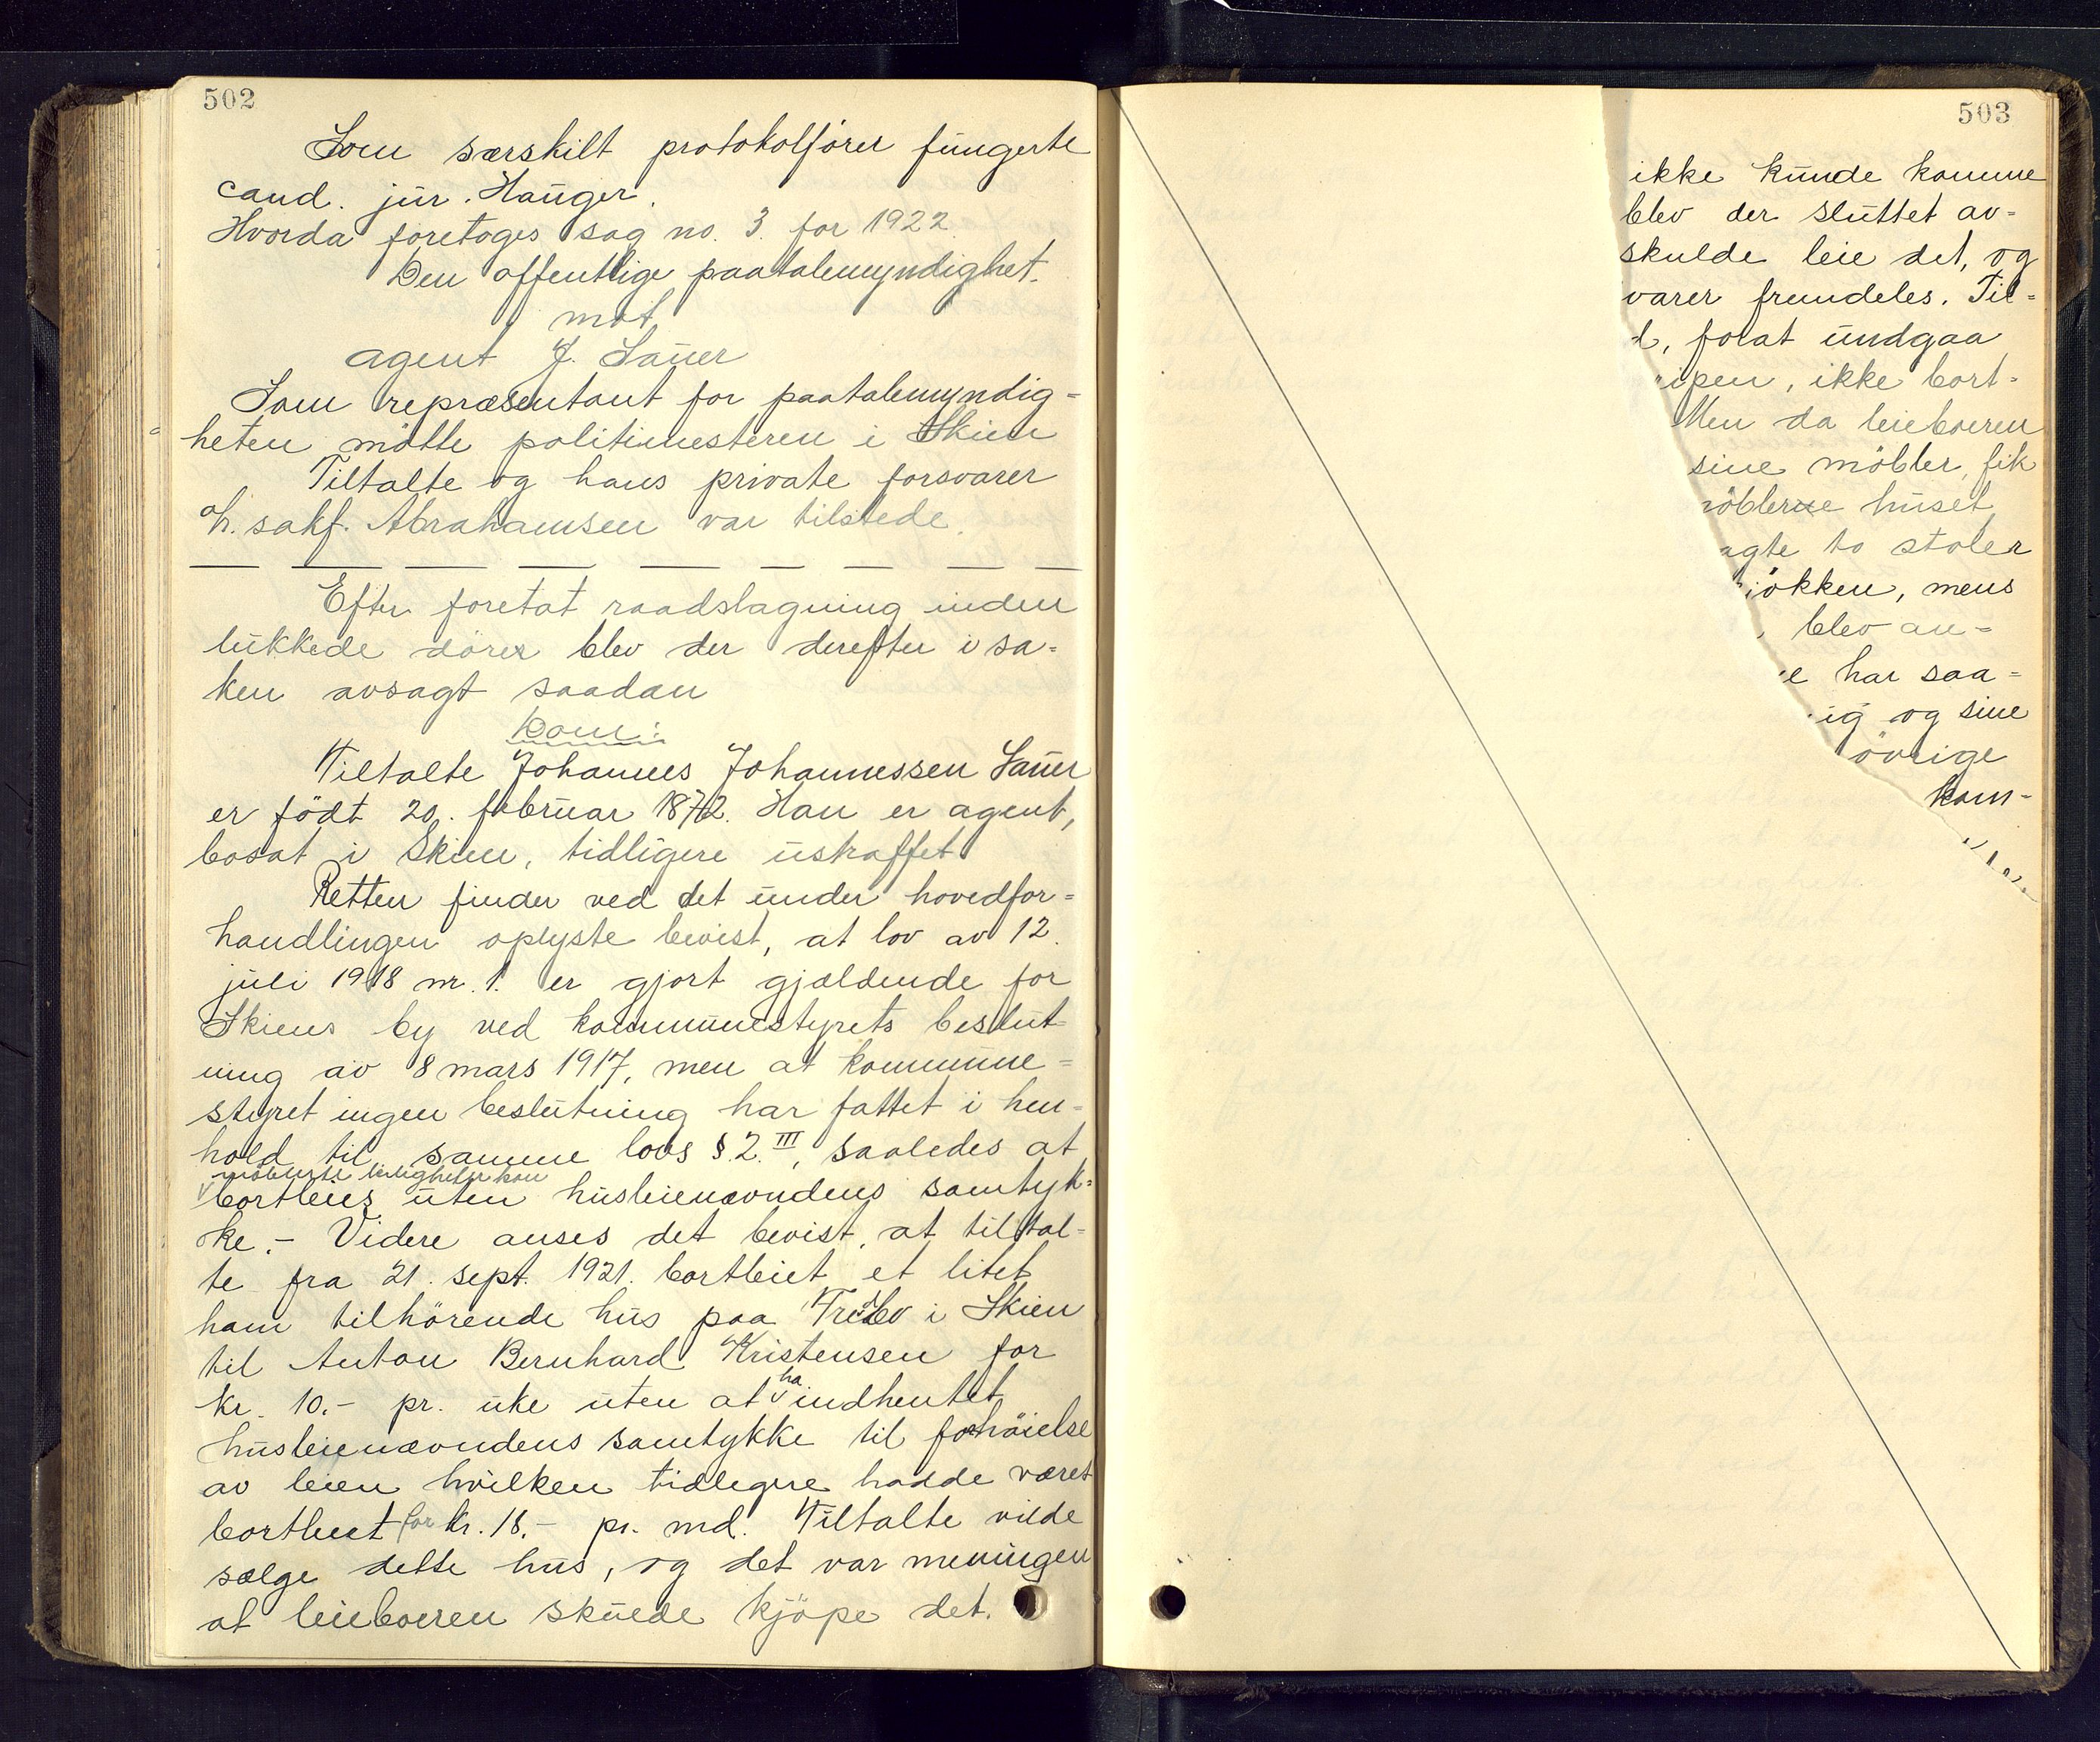 502
Som særskilt protokolfører fungerte
cand. jur. Hauger.
Hvorda foretoges sag no. 3. for 1922.
Den offentlige paatalemyndighet.
mot
agent J. Sauer
Som repræsentant for paatalemyndig=
heten møtte politimesteren i Skien
Tiltalte og hans private forsvarer
o.h. sakf. Abrahamsen var tilstede.
Efter foretat raadslagning inden
lukkede dører blev der derefter i sa=
ken avsagt saadan
Dom:
Tiltalte Johannes Johannessen Sauer
er født 20. februar 1872. Han er agent,
bosat i Skien, tidligere ustraffet.
Retten finder ved det under hovedfor=
handlingen oplyste bevist, at lov av 12.
juli 1918 nr. 1. er gjort gjældende for
Skiens by ved kommunestyrets beslut=
ning av 8 mars 1917, men at kommune=
styret ingen beslutning har fattet i hen=
hold til samme lovs § 2. III, saaledes at
møblerte leiligheter kan
bortleies uten husleienævndens samtyk=
ke. - Videre anses det bevist, at tiltal=
te fra 21. sept. 1921. bortleiet et litet
ham tilhørende hus paa i Skien
til Anton Bernhard Kristensen for
kr. 10.- pr. uke uten at ha indhentet
husleienævndens samtykke til forhøielse
av leien hvilken tidligere hadde været
bortleiet for kr. 18.- pr. md. Tiltalte vilde
sælge dette hus, og det var meningen
at leieboeren skulde kjøpe det.
503
ikke kunde komme
blev der sluttet av=
skulde leie det, og
varer fremdeles. Til=
t, forat undgaa
ipen, ikke bort=
Men da leieboeren
sine møbler, fik
øblerne huset,
agte to stoler
jøkken, mens
, blev an=
e har saa=
ig og sine
øvrige
kom-